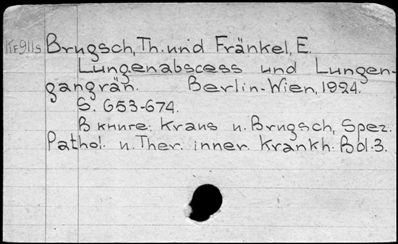 KF911s Brugsch, Th. und Fränkel, E.
Lungenabscess und Lungen-
gangrän. Berlin-Wien, 1924.
S. 653-674.
В книге: Kraus u. Brugsch, Spez.
Pathol. u. Ther. inner. Krankh. Bd. 3.